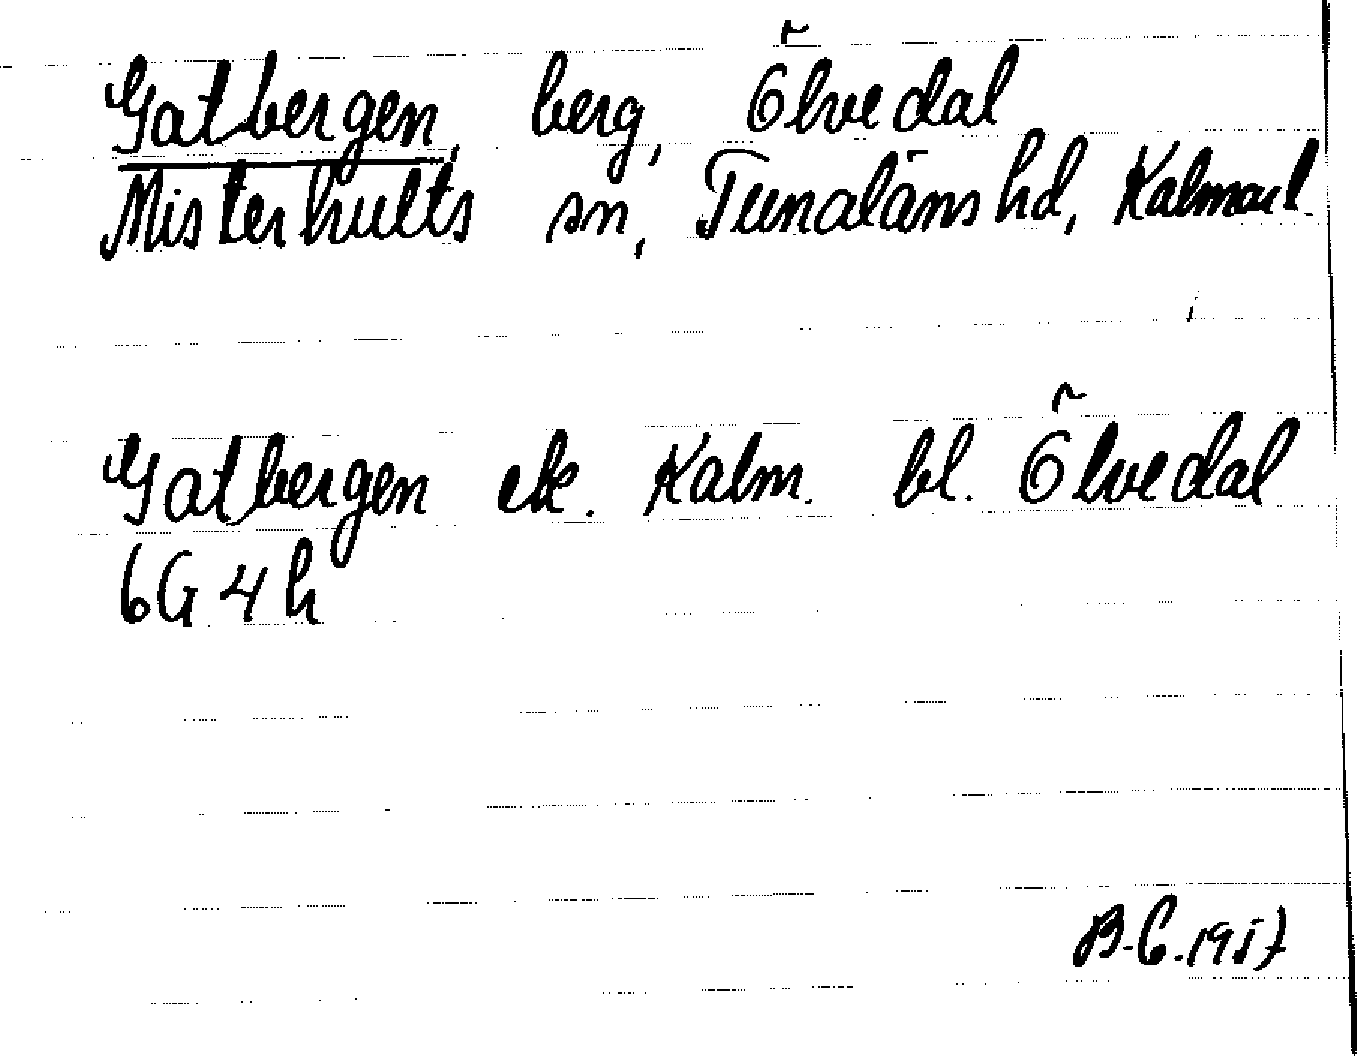 Gatbergen, berg, Ölvedal
Misterhults sn, Tunaläns hd, Kalmar l.
Gatbergen ek. Kalm. bl. Ölvedal
6G4h
B.C. 1957